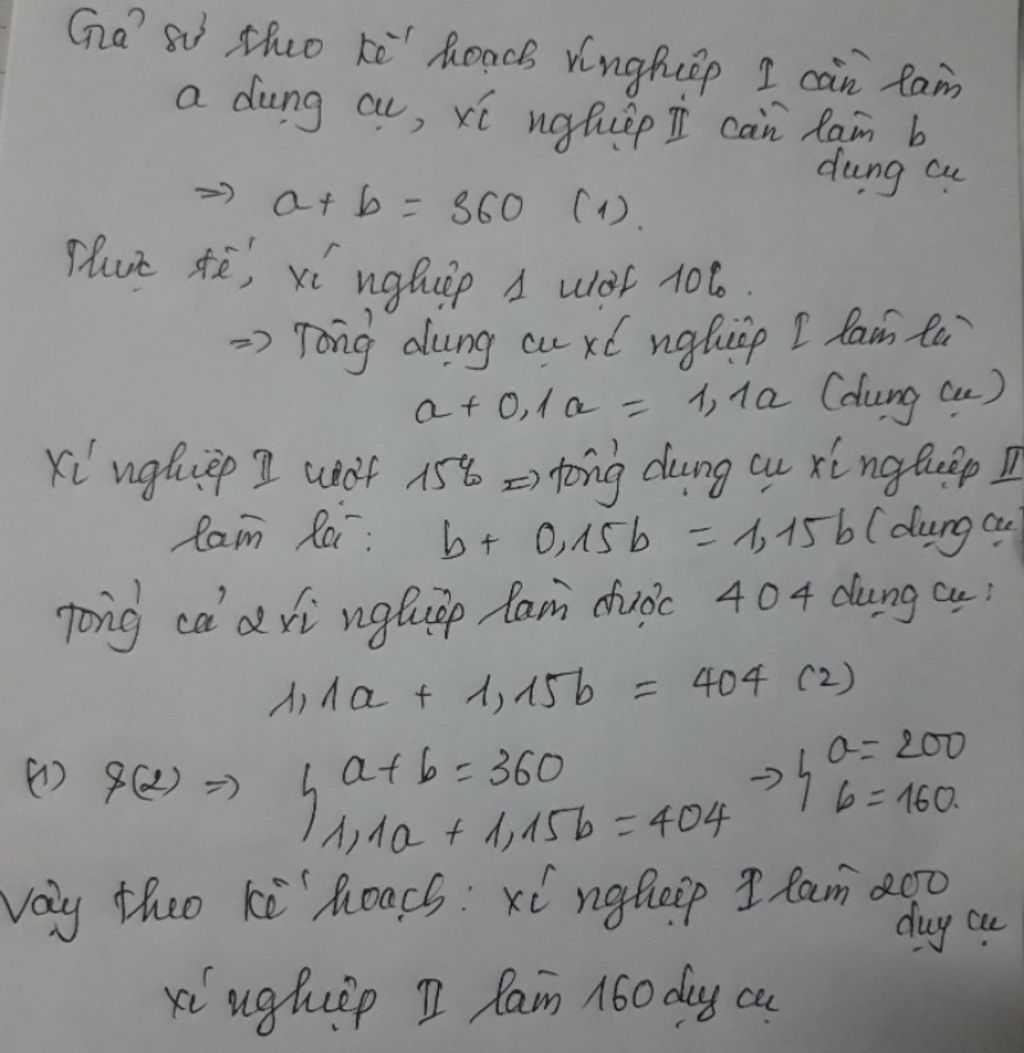 Giả sử theo kế hoạch xí nghiệp I cần làm
a dụng cụ, xí nghiệp II cần làm b
dụng cụ
=> a + b = 360 (1).
Thực tế, xí nghiệp 1 vượt 10%.
=> Tổng dụng cụ xí nghiệp I làm là
a + 0,1a = 1,1a (dụng cụ)
Xí nghiệp II vượt 15% => tổng dụng cụ xí nghiệp II
làm là: b + 0,15b = 1,15b (dụng cụ
Tổng cả 2 xí nghiệp làm được 404 dụng cụ:
1,1a + 1,15b = 404 (2)
(1) & (2) => { a + b = 360 → { a = 200
1,1a + 1,15b = 404 b = 160.
Vậy theo kế hoạch: xí nghiệp I làm 200
dụg cụ
xí nghiệp II làm 160 dụg cụ